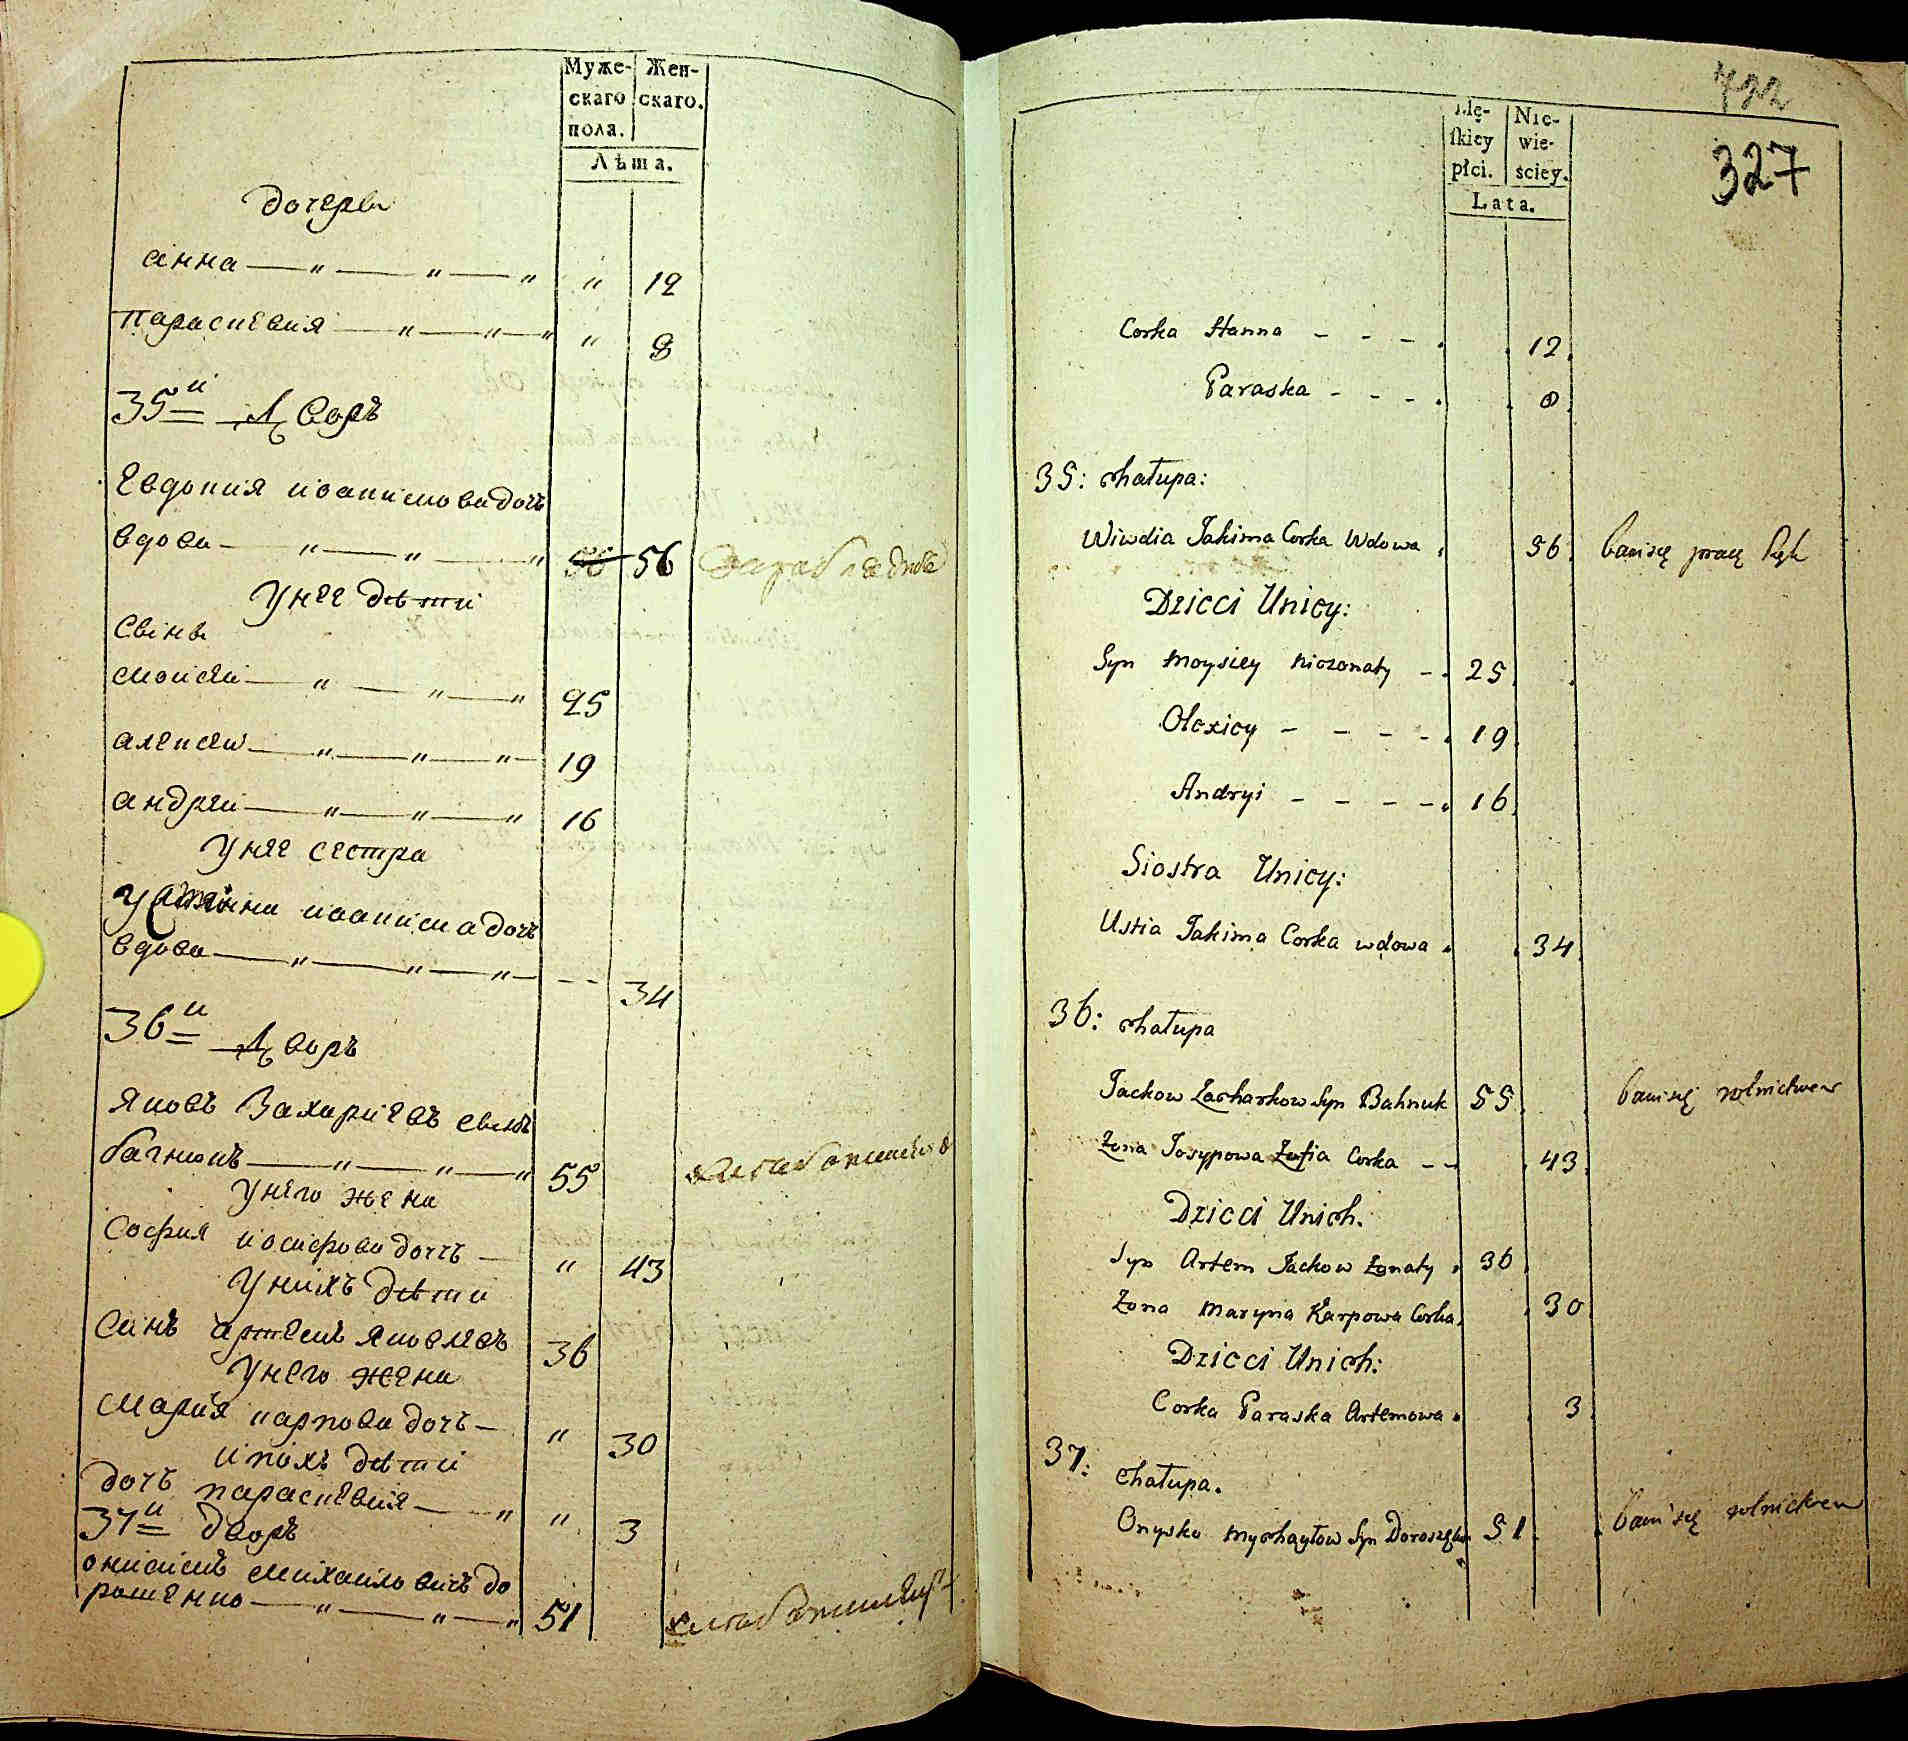 Муже- Жен-
скаго скаго.
пола.
Лѣта.
дочери
анна — " — " — " " 12
параскевия — " — " — " " 8
35й Дворъ
Евдокия иоакимова дочь
вдова — " — " — " 56 56
У нее дѣти
сынъ
моисей — " — " — " 25
алексей — " — " — " 19
андрей — " — " — " 16
У нее сестра
Устинна иоакима дочь
вдова — " — " — " — -- 34
36й Дворъ
Яковъ Захариевъ сынъ
багнюкъ — " — " — " 55 хлебопашествo
У него жена
София иосифова дочь — " 43
У нихъ дѣти
Синъ артемъ яковлевъ 36
У него жена
Мария карпова дочь — " 30
И ихъ дѣти
дочь параскевия — " " 3
37й дворъ
онисимъ михаиловичъ до
рошенко — " — " — " 51
722
327
Mę- Nie-
skiey wie-
płci. ściey.
Lata.
Corka Hanna - - - . 12.
Paraska - - - . 8.
35: chałupa:
Wiwdia Jakima Corka Wdowa . 56. bawi się pracą Rąk
Dzieci Unieÿ:
Syn Moysiey niezonaty - . 25.
Olexiey - - - - . 19.
Andryi - - - - . 16.
Siostra Uniey:
Ustia Jakima Corka wdowa . 34.
36: chałupa
Jackow Zacharkow Syn Bahnuk 55. bawi się rolnictwem
Zona Josypowa Zofia Corka - - . 43.
Dzieci Unich.
Syn Artem Jackow Zonaty . 36.
Zona Maryna Karpowa Corka. . 30.
Dzieci Unich:
Corka Paraska Artemowa . 3.
37: chałupa.
Onysko Mychayłow Syn Doroszenko 51. bawi się rolnictwem